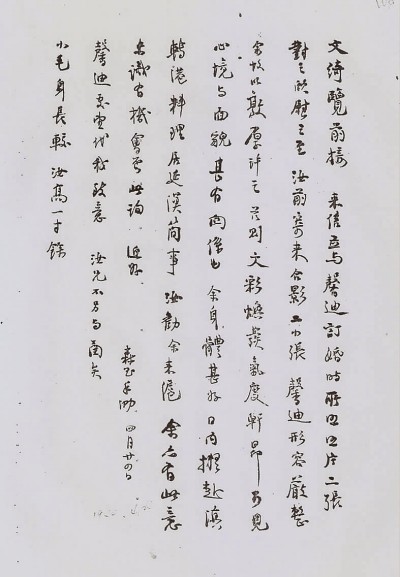 文綺覽前接 來信並與馨迪訂婚時所照照片二張
對之欣慰之至 汝前寄來合影二小張 馨迪形容嚴整
余故以敦厚許之 茲則文彩煥發氣度軒昂可見
心境與面貌甚有關係也 余身體甚好日內擬赴滇
轉港料理居延漢簡事 汝勸余來滬 余亦有此意
未識有機會否 此詢 近好
森玉手泐 四月廿四日
馨迪處望代我致意 汝兄不另與函矣
小毛身長較 汝高一寸餘